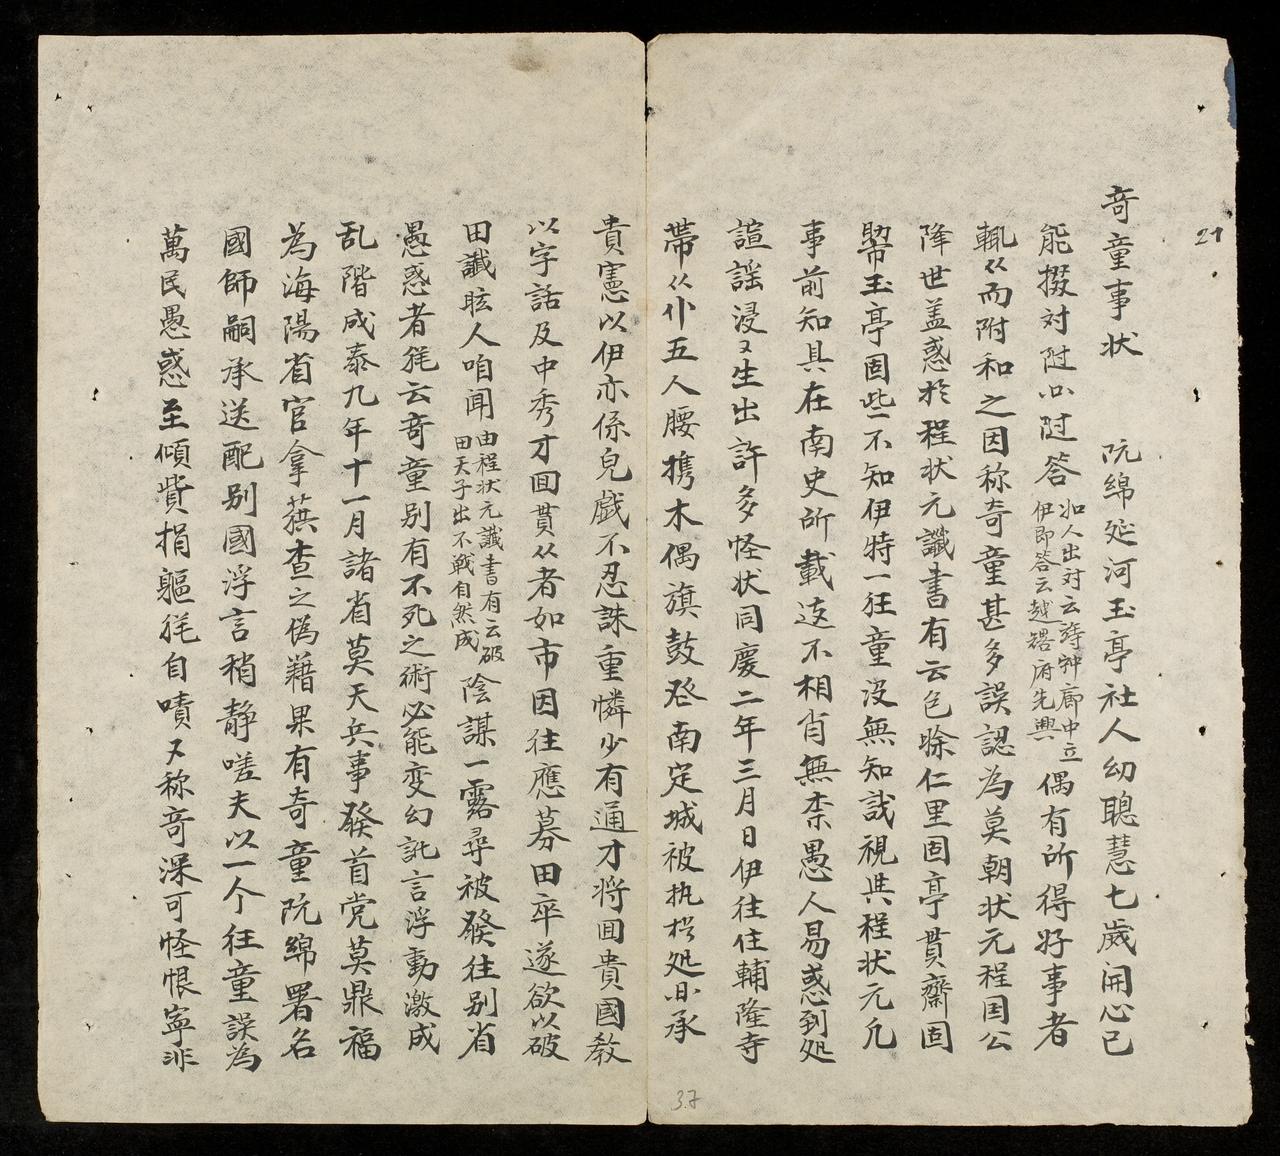 21
奇童事状　阮綿延河玉亭社人幼聰慧七歲開心已
能掇对附亦过答如人出对云蹲艸廊中立伊即答云越礎府先典偶有所得好事者
輒从而附和之因称奇童甚多誤認為莫朝状元程国公
降世盖惑於程状元讖書有云包賒仁里固亭貫齋固
幚玉亭固些不知伊特一狂童没無知識視其程状元凢
事前知具在南史所載这不相肖無柰愚人易惑到处
諠謡浸又生出許多怪状同慶二年三月日伊往住輔隆寺
帶从仆五人腰携木偶旗鼓登南定城被执於処亦承
貴憲以伊亦係兒戲不忍誅重憐少有通才将囬貴國教
以字話及中秀才囬貫从者如市因往應募田卒遂欲以破
田讖眩人咱聞由程状元讖書有云破田天子出不戰自然成陰謀一露尋被發往别省
愚惑者毪云奇童别有不死之術必能变幻訛言浮動激成
乱階成泰九年十一月諸省莫天兵事發首党莫鼎福
為海陽省官拿獲查之偽藉果有奇童阮綿署名
國師嗣承送配别國浮言稍静嗟夫以一个狂童誤為
萬民愚惑至傾貲捐軀毪自嘖又称奇深可怪恨寧非
37